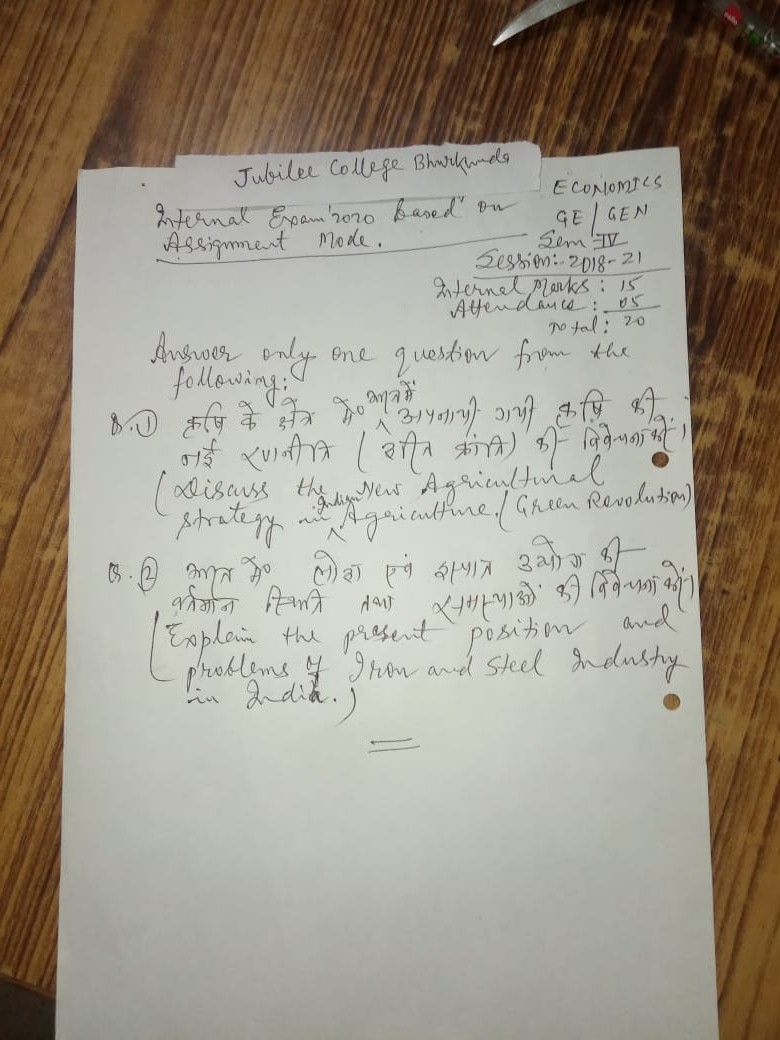 Jubilee College Bhurkunda
ECONOMICS
GE / GEN
Sem - IV
Session:- 2018-21
Internal Exam' 2020 based on
Assignment Mode.
Internal Marks : 15
Attendance : 05
Total : 20
Answer only one question from the
following:
Q.① कृषि के क्षेत्र में भारत में अपनायी गयी कृषि की
नई रणनीति (हरित क्रांति) की विवेचना करें।
(Discuss the New Agricultural
strategy in Indian Agriculture. (Green Revolution)
Q.② भारत में लोहा एवं इस्पात उद्योग की
वर्तमान स्थिति तथा समस्याओं की विवेचना करें।
(Explain the present position and
problems of Iron and Steel Industry
in India.)